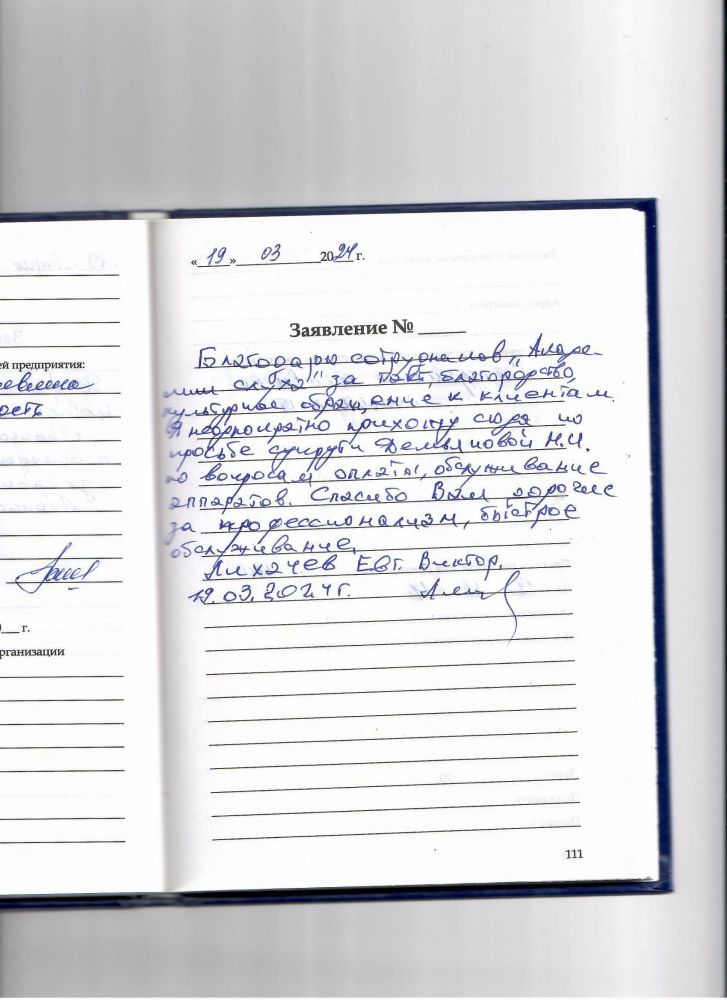 «19» 03 2024 г.
Заявление №
Благодарю сотрудников „Академии слуха" за такт, благородство,
культурное обращение к клиентам.
Я неоднократно прихожу сюда по
просьбе супруги Демьяновой Н.И.
по вопросам оплаты, обслуживание
аппаратов. Спасибо Вам дорогие
за профессионализм, быстрое
обслуживание.
Лихачев Евг. Виктор.
19.03.2024г.
111
ей предприятия:
г.
рганизации